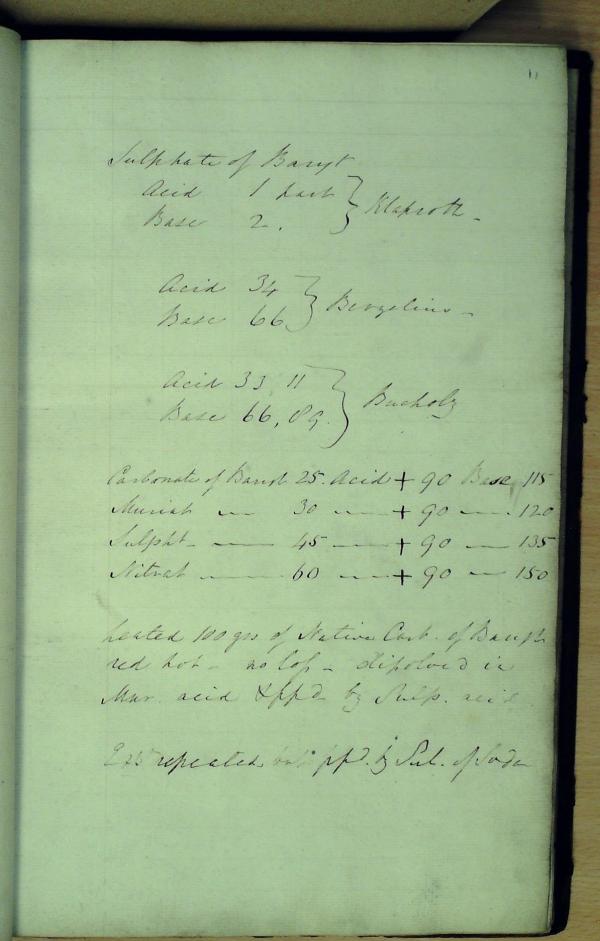 11
Sulphate of Baryt
Acid 1 part } Klaproth -
Base 2.
Acid 34 } Berzelius -
Base 66
Acid 33, 11 } Bucholz
Base 66, 89.
Carbonate of Baryt 25. Acid + 90 Base 115
Muriat — 30 — + 90 — 120
Sulpht - — 45 — + 90 — 135
Nitrat — 60 — + 90 — 150
heated 100 grs of Native Carb. of Baryt
red hot - no loss - dissolved in
Mur. acid & ppd by Sulp. acid
repeated but ppd. by Sul. of Soda